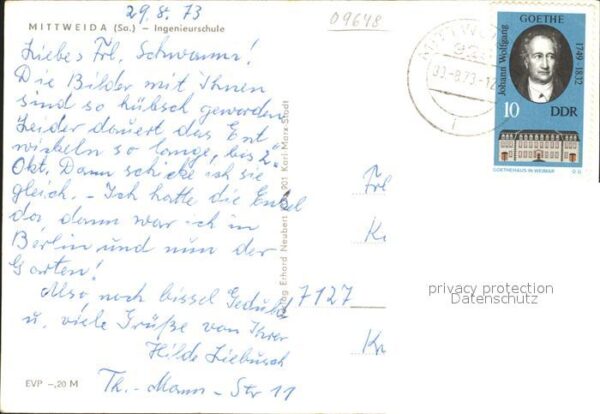 29.8.73
09648
MITTWEIDA (Sa.) — Ingenieurschule
Liebes Frl. Schwamm!
Die Bilder mit Ihnen
sind so hübsch geworden
Leider dauert das Ent
wickeln so lange, bis 2.
Okt. Dann schicke ich sie
gleich. - Ich hatte die Enkel
da, dann war ich in
Berlin und nun der
Garten!
Also noch bissel Geduld
u. viele Grüße von Ihrer
Hilde Liebusch
Th.-Mann-Str 11
EVP -,20 M
Verlag Erhard Neubert KG, 901 Karl-Marx-Stadt
MITTW
-8.73-12
GOETHE
Johann Wolfgang
1749-1832
10
DDR
GOETHEHAUS IN WEIMAR
Frl
7127
privacy protection
Datenschutz